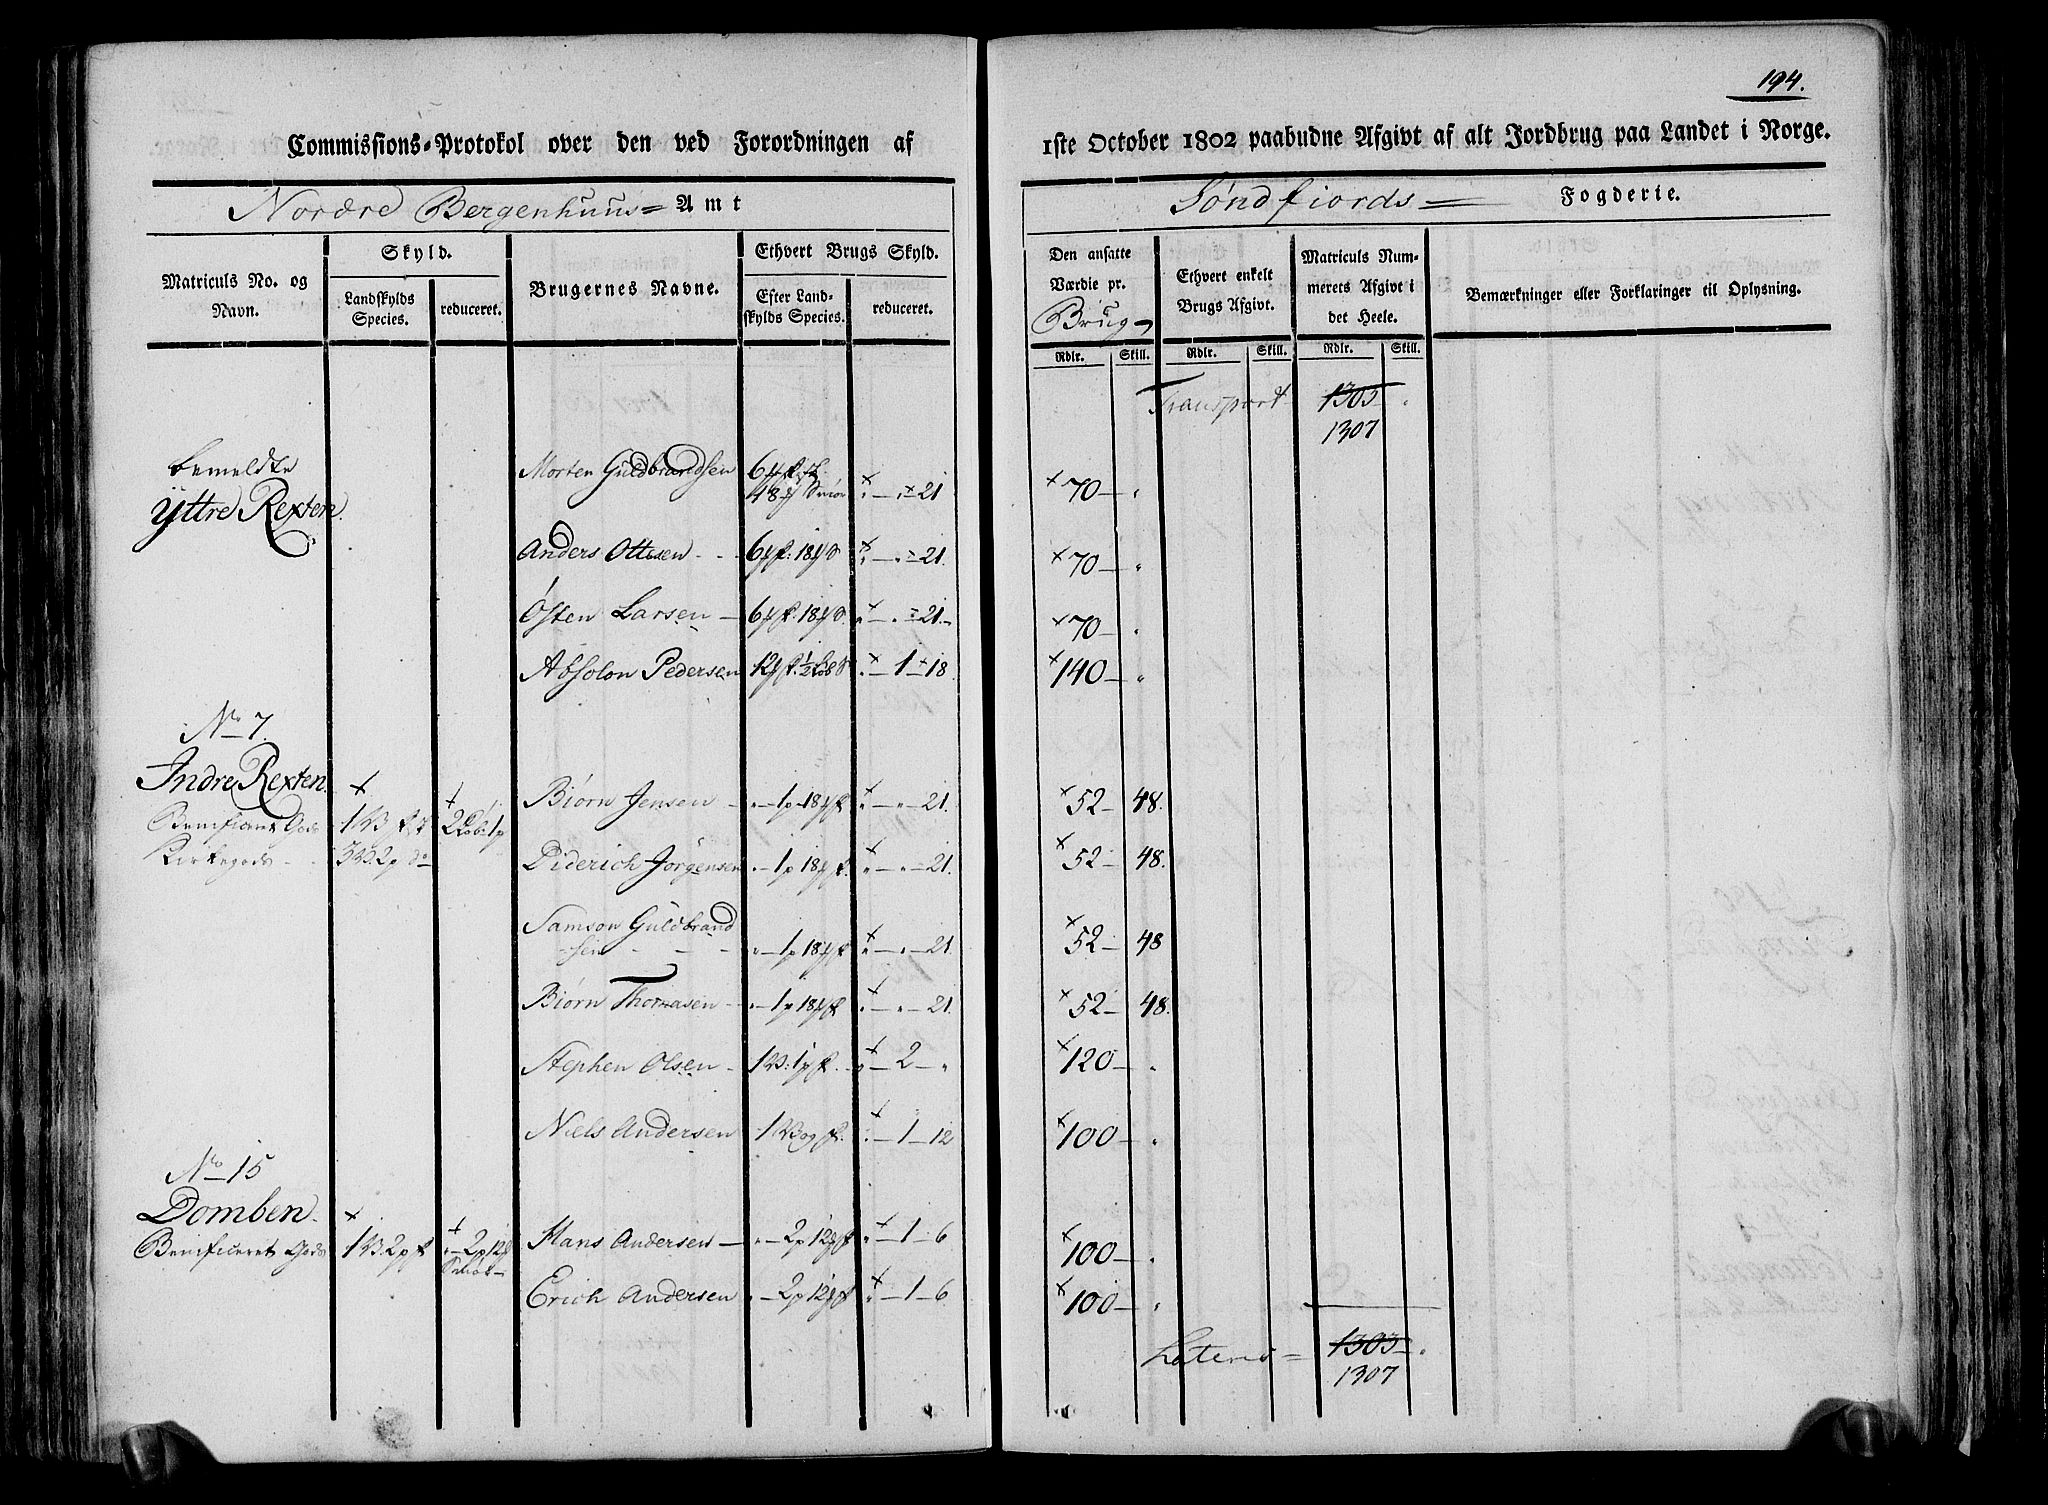 194.
Commissions-Protokol over den ved Forordningen af 1ste October 1802 paabudne Afgivt af alt Jordbrug paa Landet i Norge.
Nordre Bergenhuus= Amt
Søndfiords= Fogderie.
Matriculs No. og Navn.
Skyld.
Landskylds Species.
reduceret.
Brugernes Navne.
Ethvert Brugs Skyld.
Efter Landskylds Species.
reduceret.
Den ansatte Værdie pr. Brug
Ethvert enkelt Brugs Afgivt.
Matriculs Nummerets Afgivt i det Heele.
Bemærkninger eller Forklaringer til Oplysning.
Rdlr. Skill. Rdlr. Skill. Rdlr. Skill.
Transport 1303 "
1307
bemeldte
Yttre Rexten.
Morten Guldbrandsen × " — " — 21 × 70 — "
Anders Ottesen - - × " — " — 21. × 70 — "
Østen Larsen — × " — " — 21. × 70 — "
Absolon Pedersen × " — 1 — 18. × 140 — "
No 7.
Indre Rexten.
Kirkegods - -
Biørn Jensen — " — 1p — 18 × " — " — 21. × 52 — 48.
Diderich Jørgensen " — 1p 18 × " — " — 21. × 52 — 48.
Samson Guldbrand
sen - - - " — 1p 18 × " — " — 21. × 52 — 48
Biørn Thomasen - " — 1p 18 × " — " — 21. × 52 — 48.
Stephen Olsen — × " — 2 — " × 120 — "
Niels Andersen × " — 1 — 12 × 100 — "
No 15
Domben.
Benificeret Gods
Hans Andersen — " — 2p 12 × " — 1 — 6 × 100 — "
Erich Andersen " — 2p 12 × " — 1 — 6 × 100 — "
Lateris = 1303 — "
1307